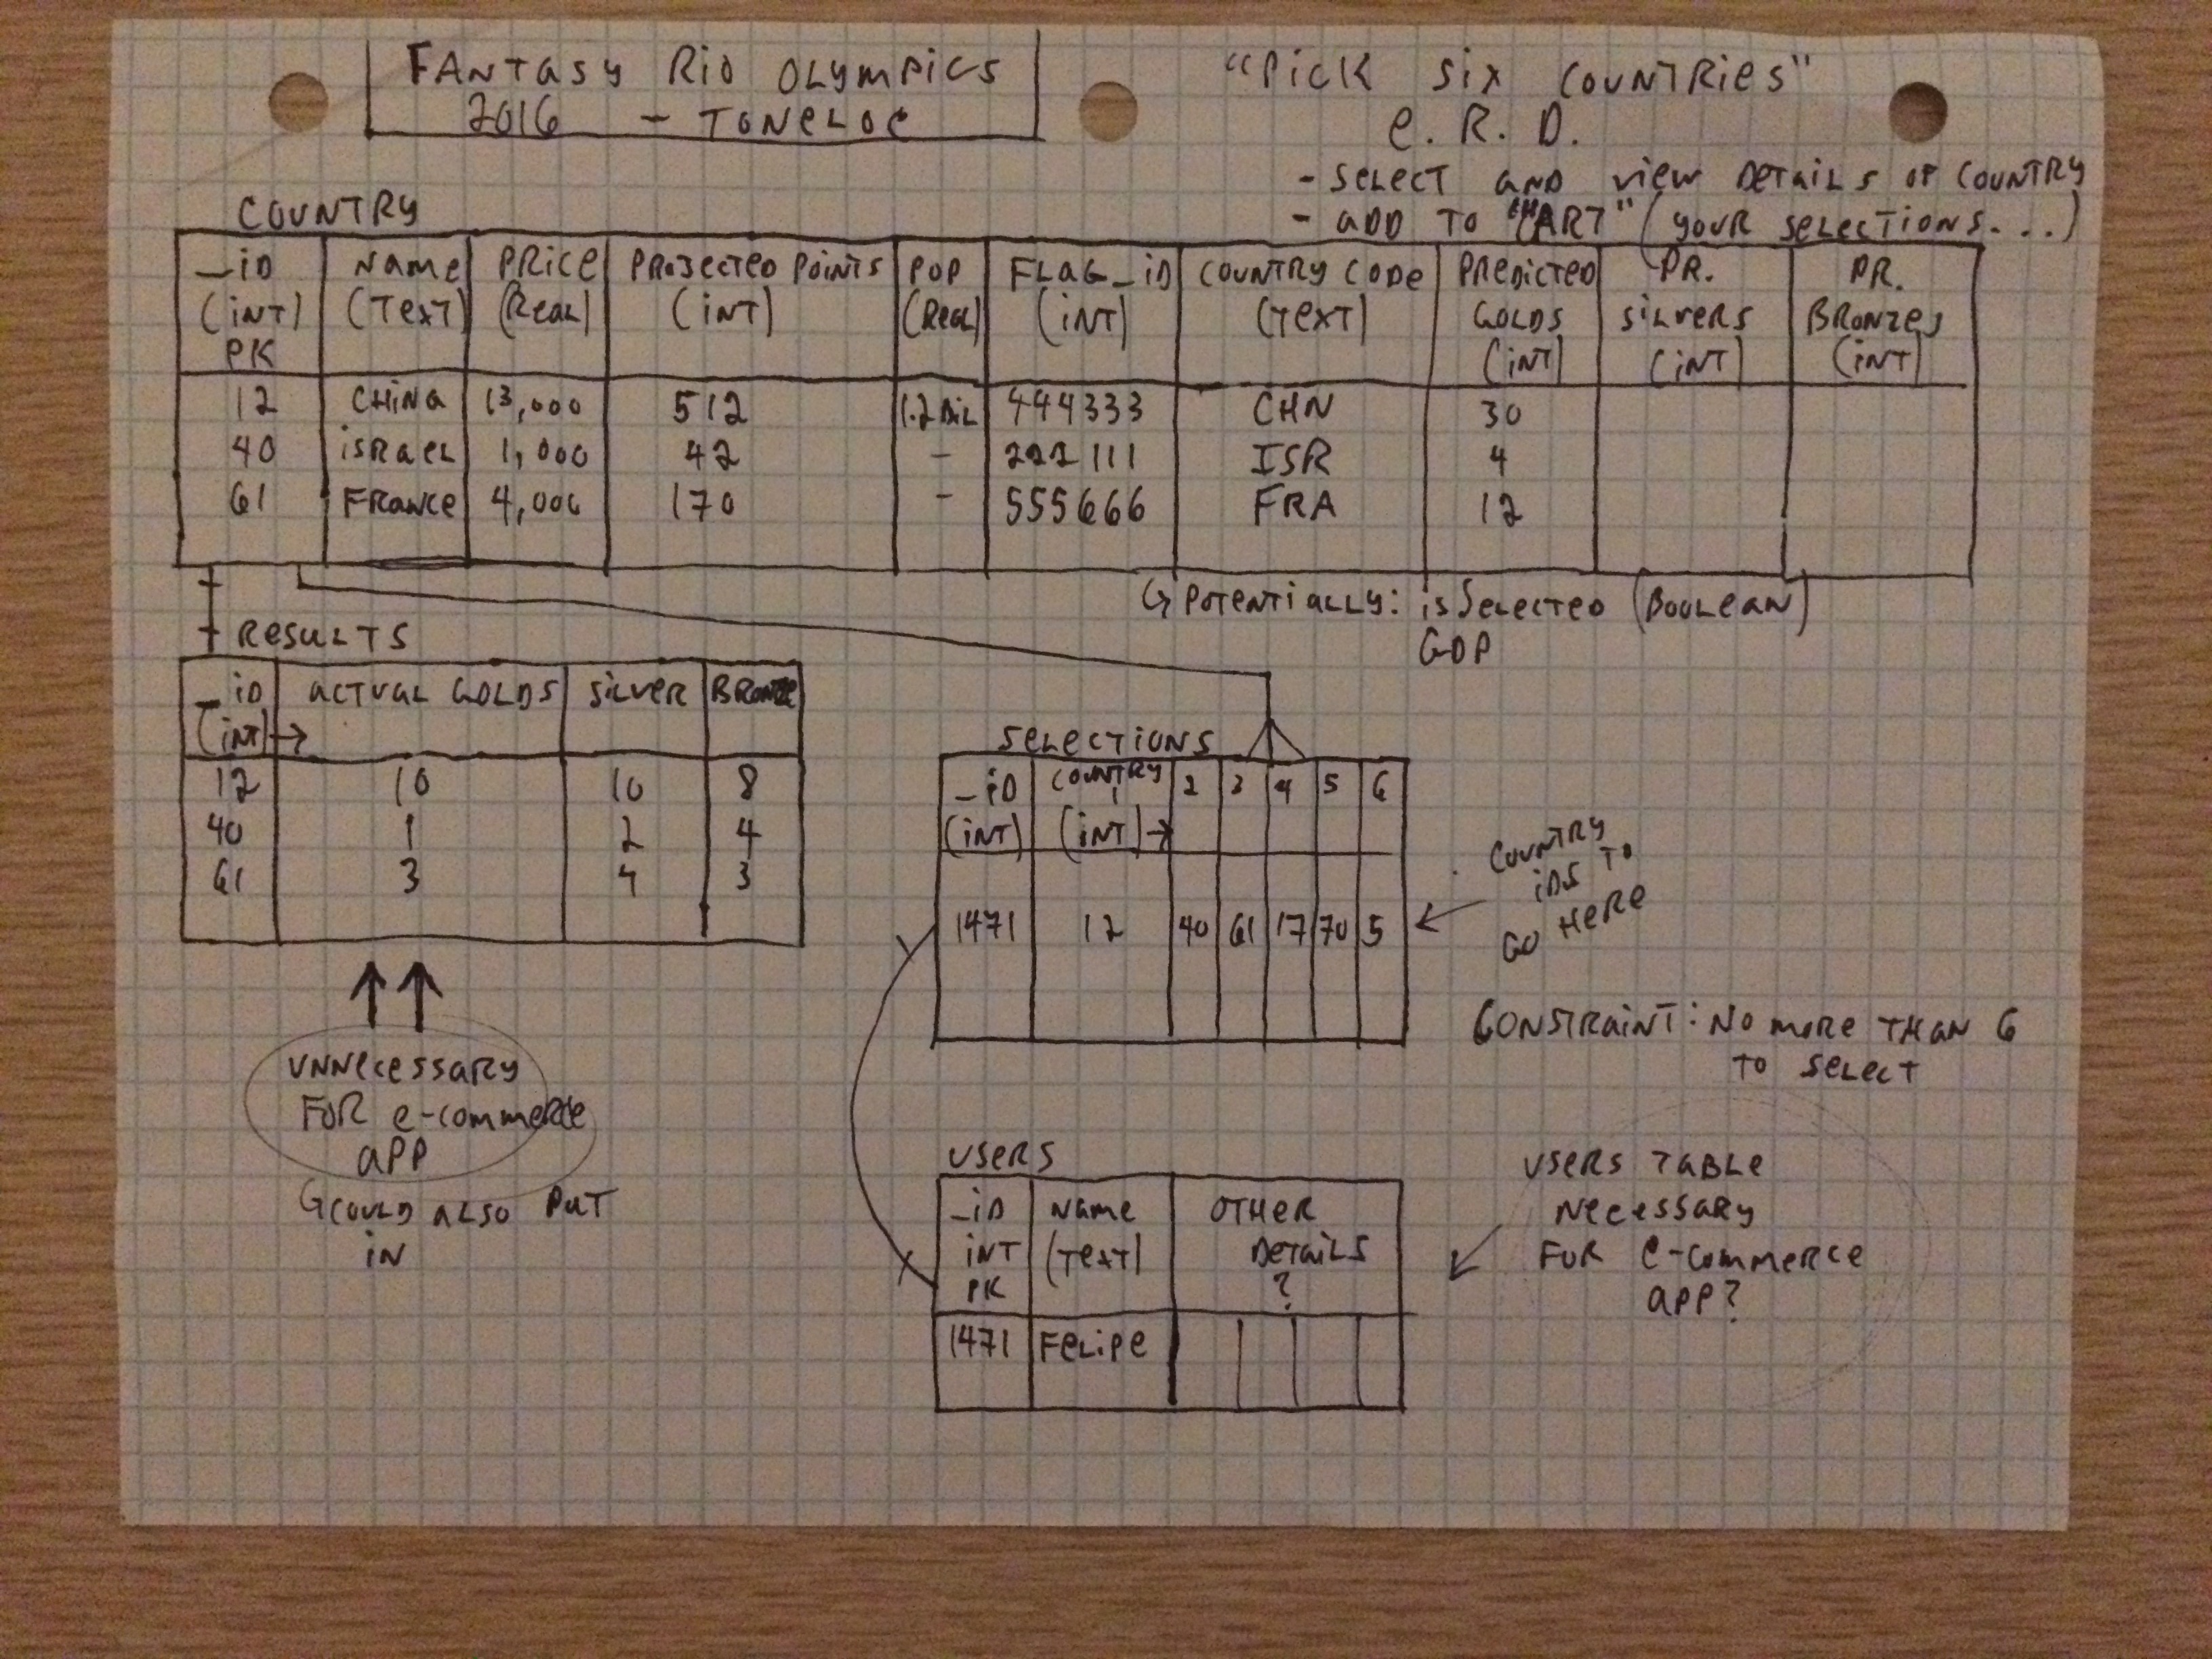 FANTASY RIO OLYMPICS
2016 - TONELOC
"PICK SIX COUNTRIES"
E.R.D.
- SELECT AND VIEW DETAILS OF COUNTRY
- ADD TO "CHART" (YOUR SELECTIONS...)
COUNTRY
_ID (INT) PK | NAME (TEXT) | PRICE (REAL) | PROJECTED POINTS (INT) | POP (REAL) | FLAG_ID (INT) | COUNTRY CODE (TEXT) | PREDICTED GOLDS (INT) | PR. SILVERS (INT) | PR. BRONZES (INT)
12 | CHINA | 13,000 | 512 | 1.2BIL | 444333 | CHN | 30
40 | ISRAEL | 1,000 | 42 | - | 222111 | ISR | 4
61 | FRANCE | 4,000 | 170 | - | 555666 | FRA | 12
POTENTIALLY: isSELECTED (BOOLEAN)
GDP
RESULTS
_ID (INT) | ACTUAL GOLDS | SILVER | BRONZE
12 | 10 | 10 | 8
40 | 1 | 2 | 4
61 | 3 | 4 | 3
UNNECESSARY
FOR E-COMMERCE
APP
COULD ALSO PUT
IN
SELECTIONS
_ID (INT) | COUNTRY (INT) | 2 | 3 | 4 | 5 | 6
1471 | 12 | 40 | 61 | 17 | 70 | 5
COUNTRY
IDS TO
GO HERE
CONSTRAINT: NO MORE THAN 6
TO SELECT
USERS
_ID INT PK | NAME (TEXT) | OTHER DETAILS ?
1471 | FELIPE
USERS TABLE
NECESSARY
FOR E-COMMERCE
APP?